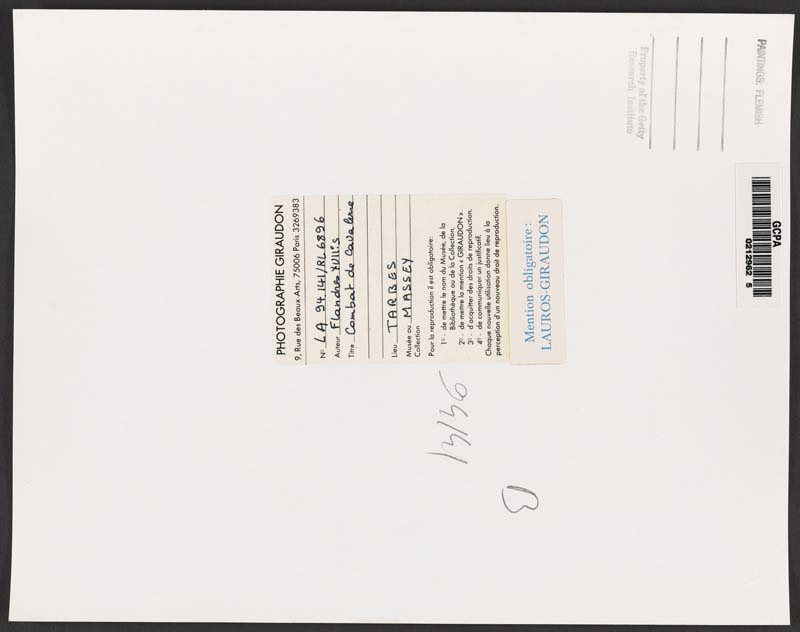 PAINTINGS: FLEMISH
Property of the Getty
Research Institute
GCPA
0212962 5
PHOTOGRAPHIE GIRAUDON
9, Rue des Beaux-Arts, 75006 Paris 3269383
N° LA 94141/RL6896
Auteur Flandres XVII:s
Titre Combat de Cavalerie
Lieu TARBES
Musée ou MASSEY
Collection
Pour la reproduction il est obligatoire:
1° - de mettre le nom du Musée, de la
Bibliothèque ou de la Collection.
2° - de mettre la mention « GIRAUDON ».
3° - d'acquitter des droits de reproduction.
4° - de communiquer un justificatif.
Chaque nouvelle utilisation donne lieu à la
perception d'un nouveau droit de reproduction.
Mention obligatoire :
LAUROS-GIRAUDON
B